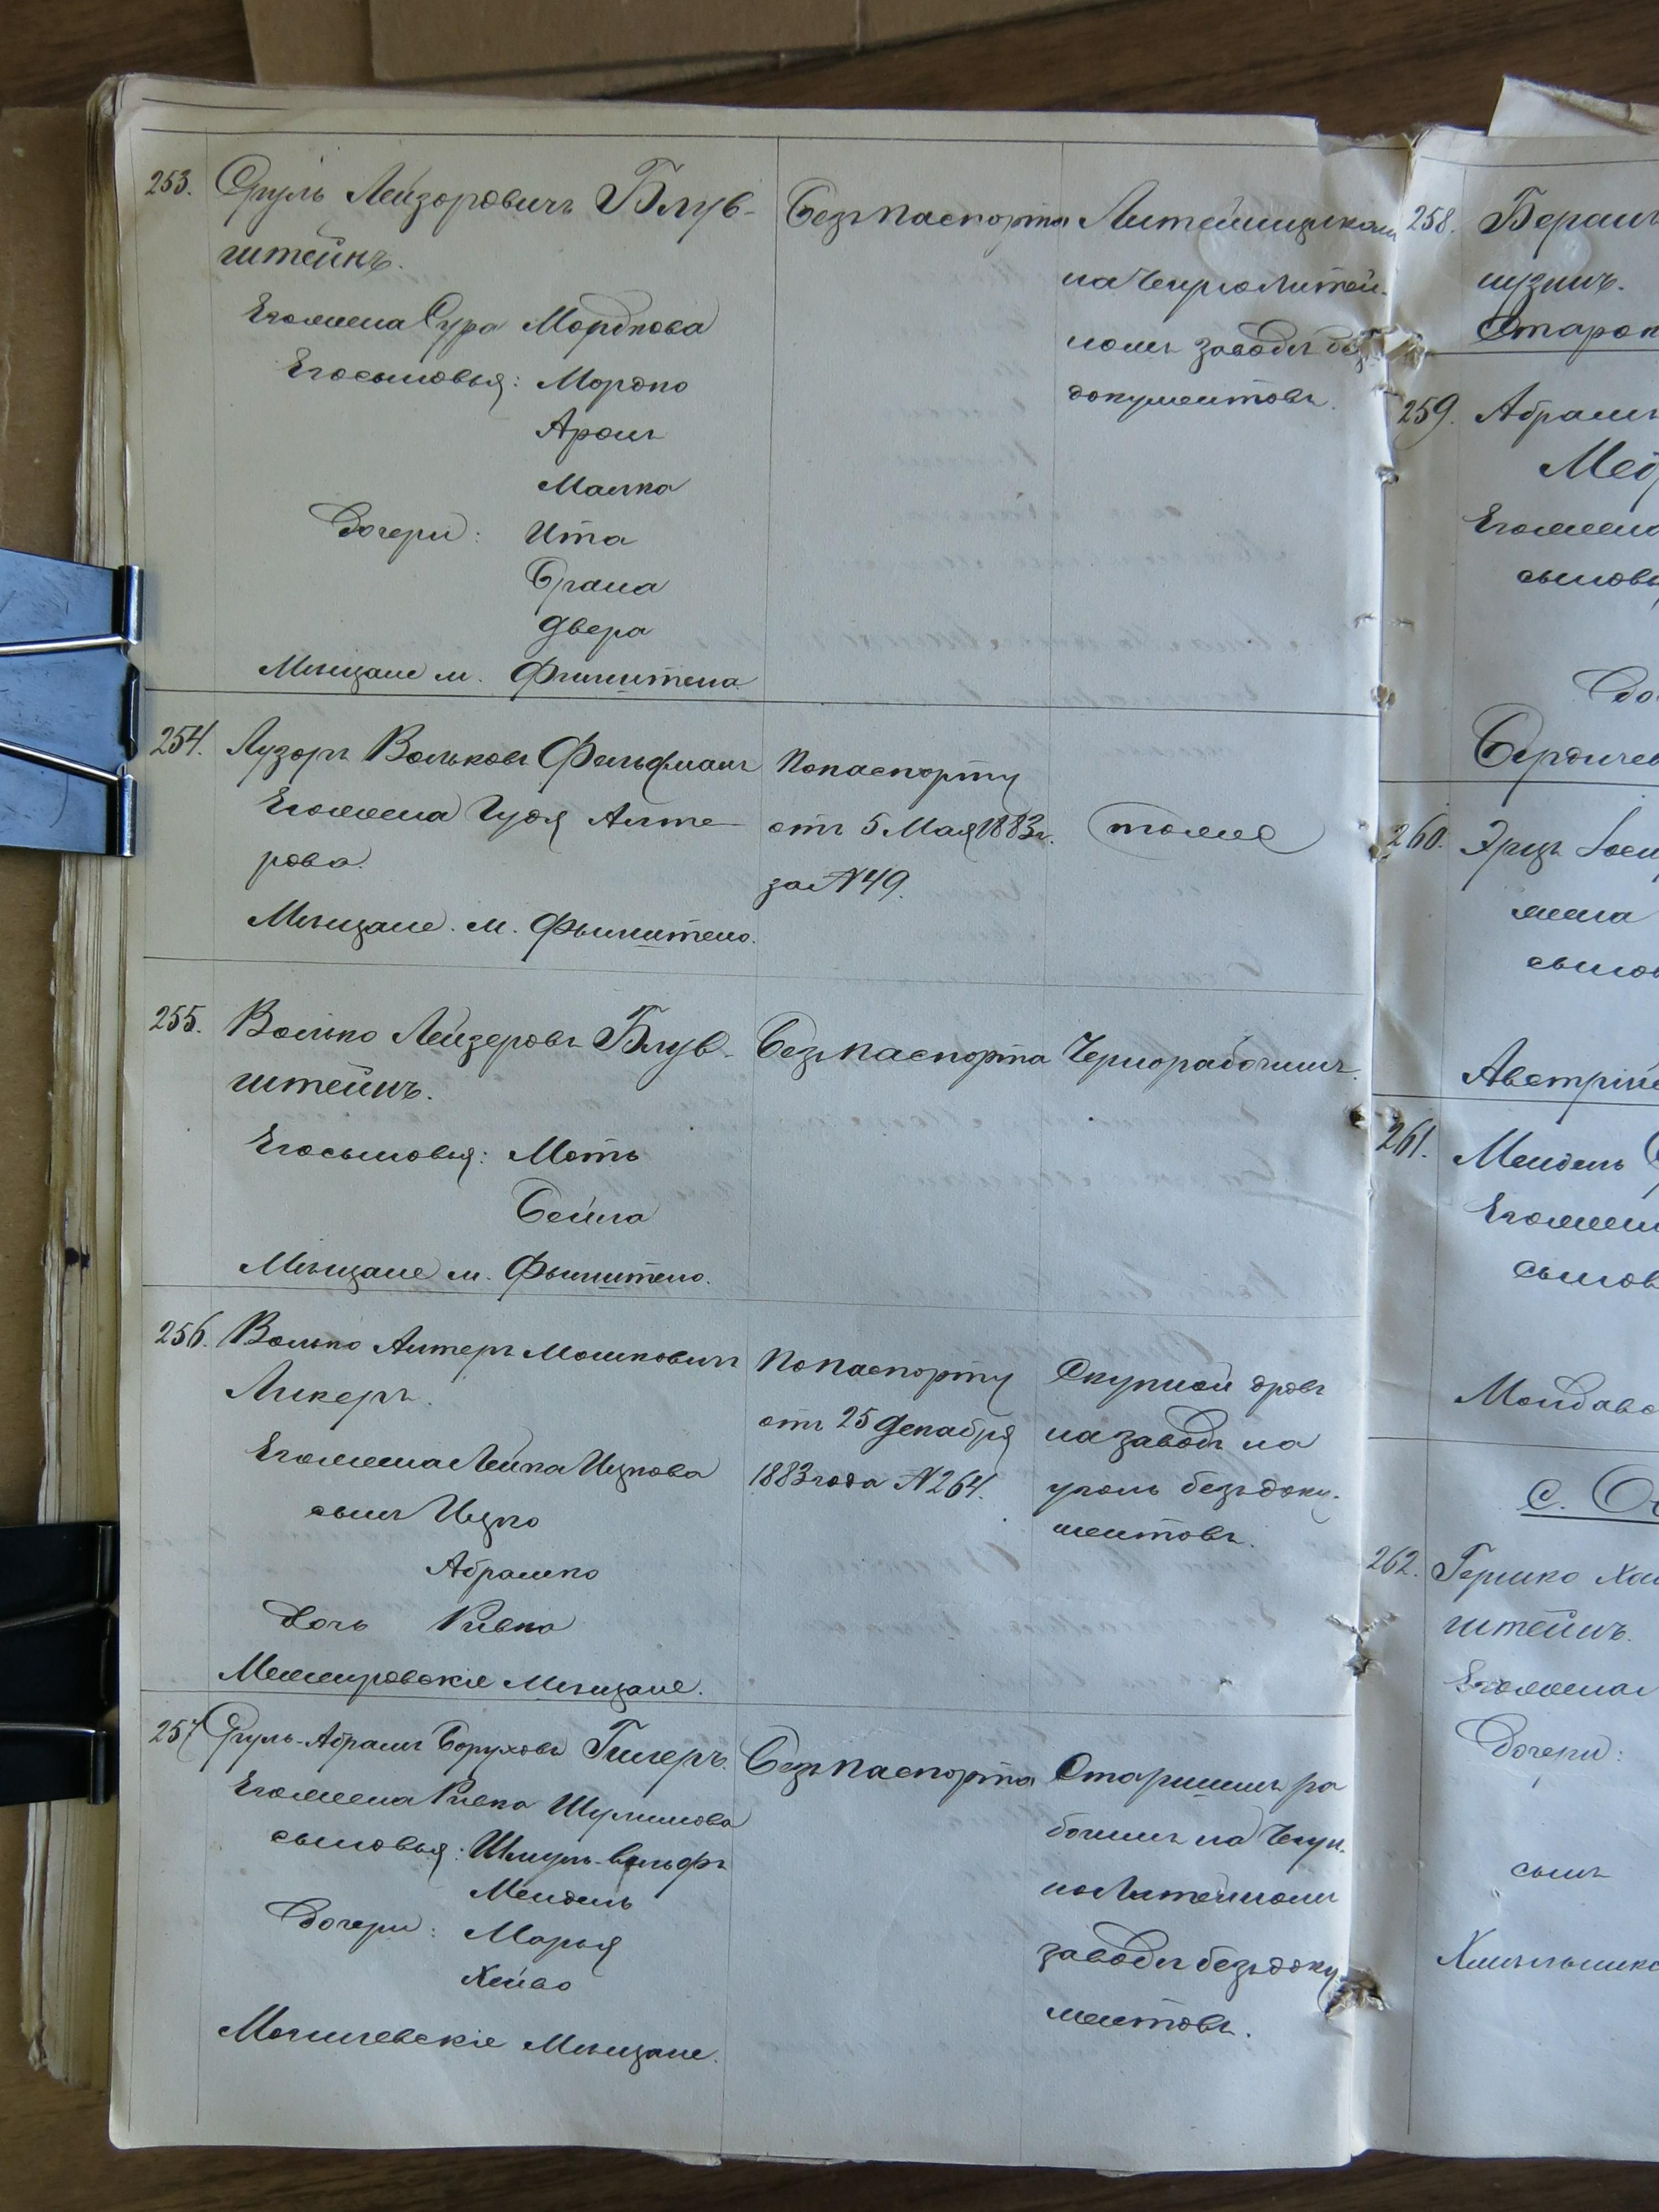 253. Сруль Лейзоровичъ Блув-
штейнъ.
Его жена Сура Мордкова
Его сыновья: Мордко
Аронъ
Малка
Дочери: Ита
Брана
Двера
Мѣщане м.
Без паспорта
Литейщикомъ
на Чугуно Литей-
номъ заводѣ без
документовъ.
254. Лузоръ Вольковъ Фельдманъ
Его жена Гудя Алте-
рова.
Мѣщане. м.
По паспорту
отъ 5 Мая 1883г.
за №49.
тоже
255. Волько Лейзеровъ Блув-
штейнъ.
Его сыновья: Моть
Бейла
Мѣщане м.
Безъ паспорта
Чернорабочимъ.
256. Волько Алтеръ Мошковичъ
Ликеръ.
Его жена Лейка Ицкова
сынъ Ицко
Абрамко
Дочь Ривка
Немировскіе Мѣщане.
По паспорту
отъ 25 Декабря
1883 года №264.
Скупкой дровъ
на заводъ на
уголь безъ доку-
ментовъ.
257 Сруль-Абрамъ Боруховъ
Его жена Ривка Шулимова
сыновья: Шмуль-Вольфъ
Мендель
Дочери: Марья
Хейво
Могилевскіе Мѣщане.
Безъ паспорта
Старшимъ ра
бочимъ на Чугун.
но Литейномъ
заводѣ безъ доку
ментовъ.
258.
шзинъ.
259. Абрамъ
Его жена
сыновь
260. Эршъ
жена
сынов
261. Мендель
Его жена
сынов
с.
262. Гершко
штейнъ.
Его жена
Дочери:
сынъ